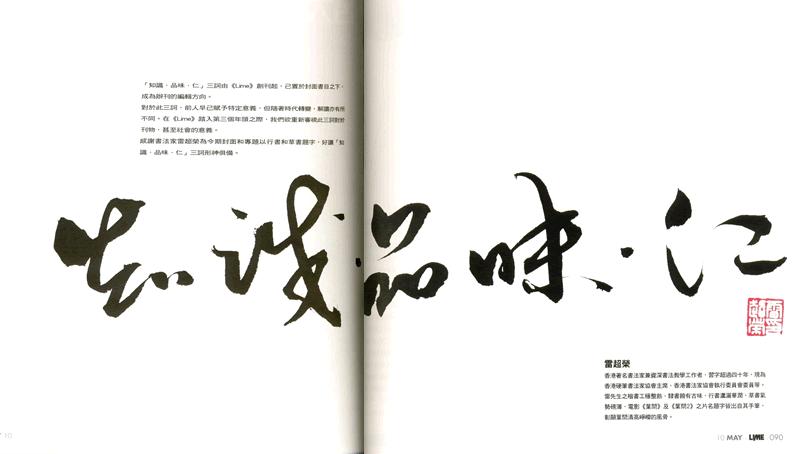 「知識・品味・仁」三詞由《Lime》創刊起，已置於封面書目之下，
成為辦刊的編輯方向。
對於此三詞，前人早已賦予特定意義，但隨著時代轉變，解讀亦有所
不同。在《Lime》踏入第三個年頭之際，我們欲重新審視此三詞對於
刊物、甚至社會的意義。
感謝書法家雷超榮為今期封面和專題以行書和草書題字，好讓「知
識・品味・仁」三詞形神俱備。
知識・品味・仁
雷超榮
香港著名書法家兼資深書法教學工作者，習字超過四十年，現為
香港硬筆書法家協會主席、香港書法家協會執行委員會委員等。
雷先生之楷書工穩整飭、隸書饒有古味、行書瀟灑華潤、草書氣
勢磅礡，電影《葉問》及《葉問2》之片名題字皆出自其手筆，
彰顯葉問清高崢嶸的風骨。
10
10 MAY LIME 090